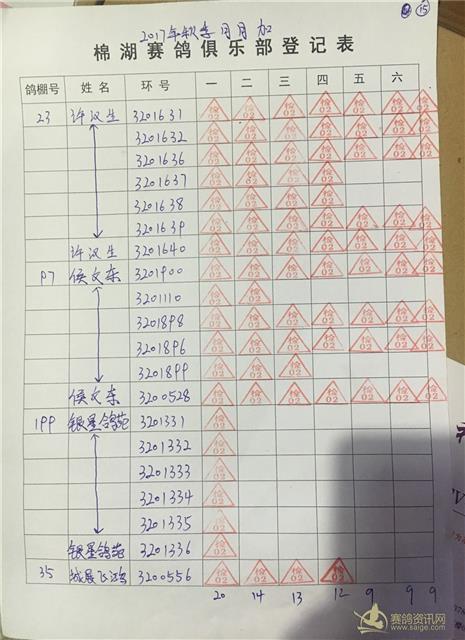 ⑮
2017年秋季月月加
棉湖赛鸽俱乐部登记表
鸽棚号 姓名 环号 一 二 三 四 五 六
23 许汉生 3201631 检02 检02 检02 检02 检02 检02 检02
3201632 检02 检02 检02 检02 检02 检02 检02
3201636 检02 检02 检02 检02 检02 检02 检02
3201637 检02 检02 检02 检02
3201638 检02 检02 检02 检02
3201639 检02 检02 检02 检02 检02 检02 检02
许汉生 3201640 检02 检02 检02 检02 检02 检02 检02
97 侯文东 3201900 检02 检02 检02 检02 检02 检02 检02
3201110 检02 检02
3201898 检02 检02 检02 检02 检02 检02 检02
3201896 检02 检02 检02 检02 检02 检02 检02
3201899 检02 检02 检02
侯文东 3200528 检02 检02 检02 检02 检02 检02 检02
199 银星鸽苑 3201331 检02
3201332 检02
3201333 检02
3201334 检02
3201335 检02
银星鸽苑 3201336 检02
35 城展飞鸿 3200556 检02 检02 检02 检02
20 14 13 12 9 9 9
赛鸽资讯网
www.saige.com